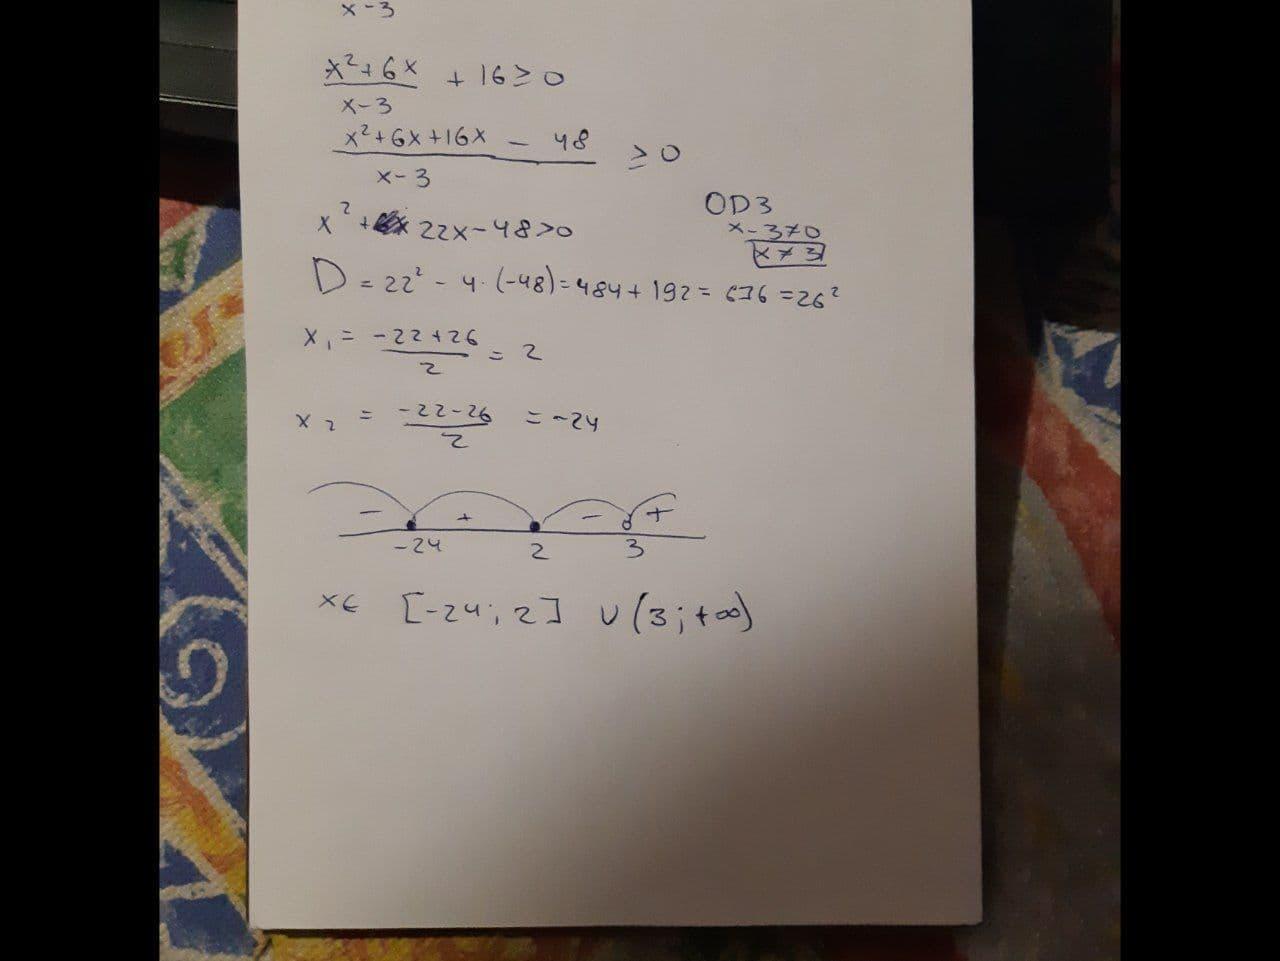 x-3
x²+6x
x-3
+ 16 ≥ 0
x²+6x+16x - 48
x-3
≥ 0
x²+ 22x-48>0
ОДЗ
x-3≠0
x≠3
D = 22² - 4·(-48)=484+192= 676 =26²
x₁ = -22+26
2
= 2
x₂ = -22-26
2
= -24
- + - +
-24 2 3
x∈ [-24; 2] ∪ (3; +∞)